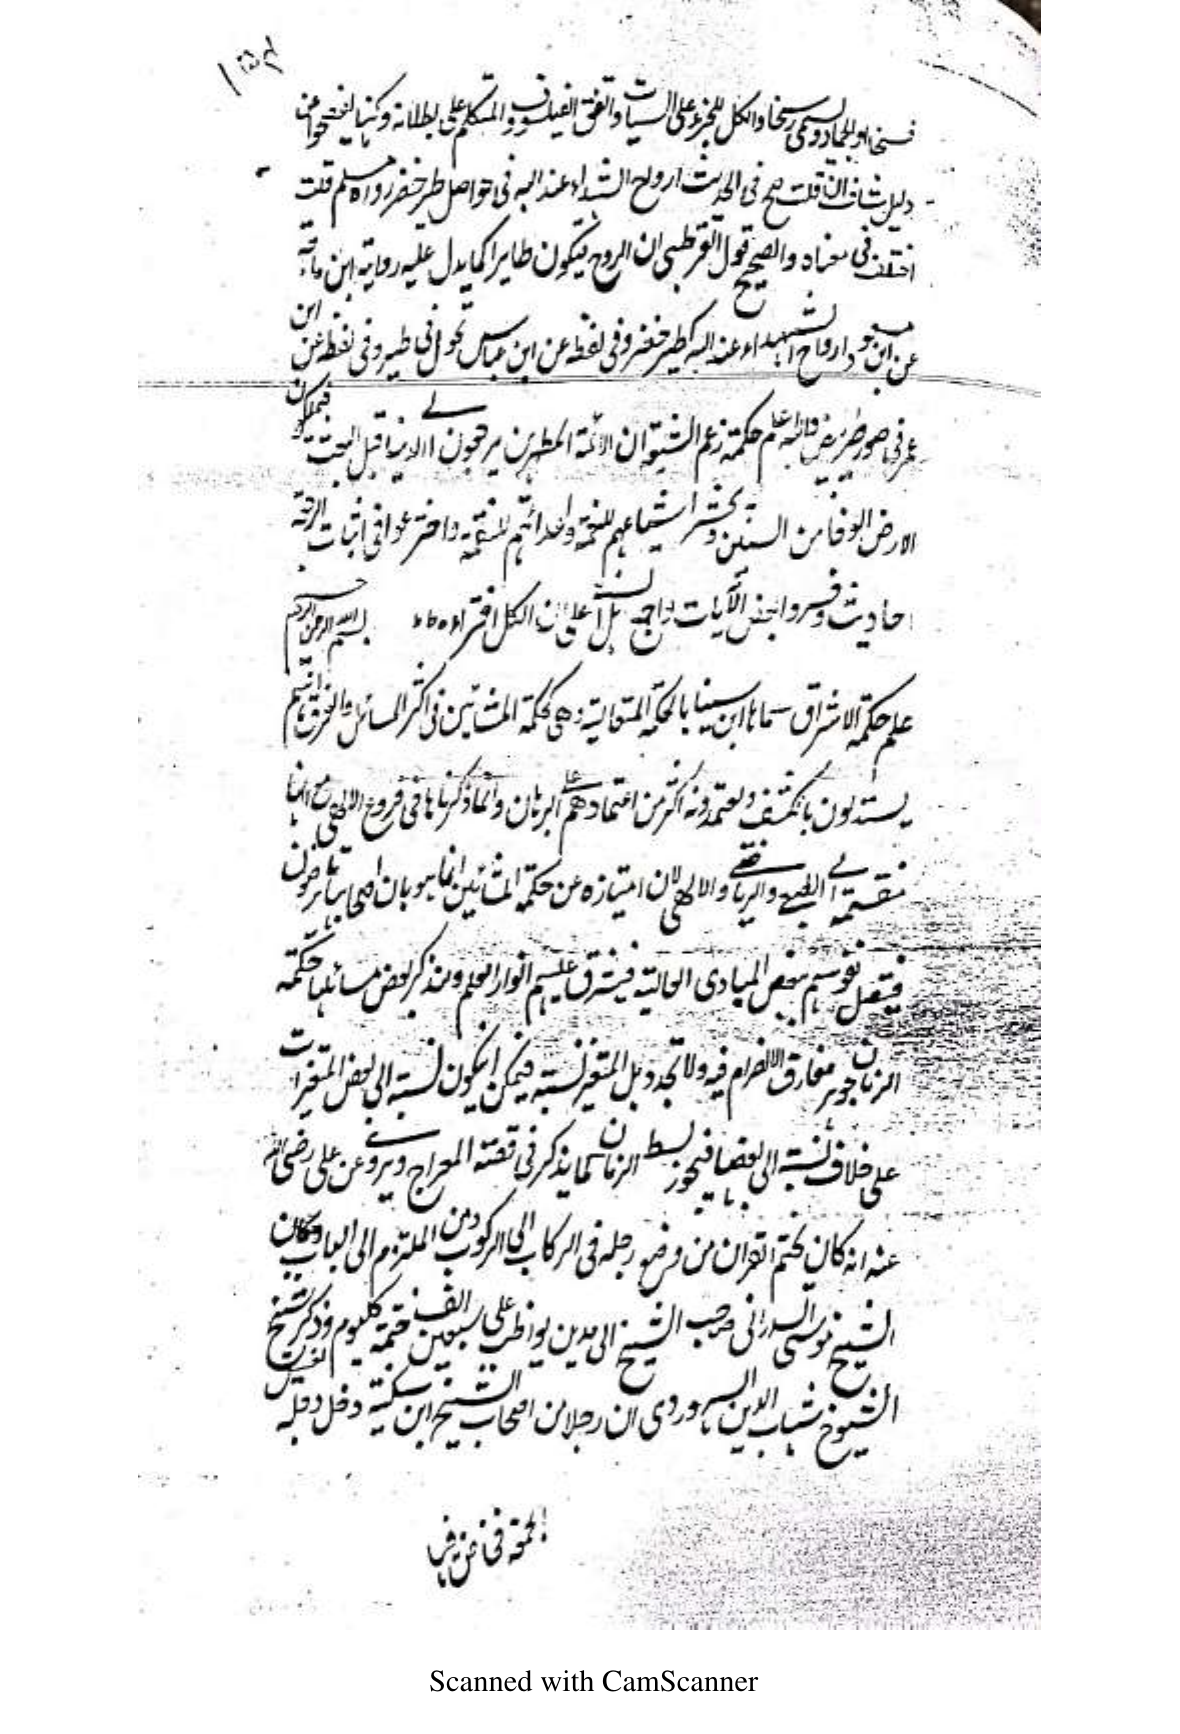 فسخا او للجماد ويسمى رسخا والكل للجزء على السيات واتفق الفيلسوف والمتكلم على بطلانه وكنا لفصحوا عن
دليل شاف فان قلت صح في الحديث ارواح الشهداء عند الله في حواصل طير خضر رواه مسلم قلت
اختلف في معناه والصحيح قول القرطبي ان الروح يتكون طايرا كما يدل عليه رواية ابن ماجة
عن ابن مسعود ارواح الشهداء عند الله كطير خضر وفي لفظ عن ابن عباس تحول في طير وفي لفظ عن ابن
عمر في صور طير بيض والله اعلم حكمة زعم الشيعة ان الائمة المطهرين يرجعون الى الدنيا قبل البعث فيملكون
الارض الوفا من السنين ويحشر اشياعهم للنعمة واعدائهم للنقمة واخترعوا في اثبات الرجعة
احاديث وفسروا بعض الآيات واجمع اهل السنة على ان الكل افتراء بسم الله الرحمن الرحيم
علم حكمة الاشراق سماها ابن سينا بالحكمة المتعالية وهي كحكمة المشائين في اكثر المسائل والفرق انهم
يستدلون بالكشف ويعتمدونه اكثر من اعتمادهم على البرهان وانما ذكرناها في فروع الالهي مع انها
منقسمة الى الطبيعي والرياضي والالهي لان امتيازه عن حكمة المشائين انما هو بان اصحابها يرتاضون
فيتصل نفوسهم ببعض المبادي العالية فيشرق عليهم انوار العلم ولنذكر بعض مسائلها حكمة
الزمان جوهر مفارق لا انصرام فيه ولا تجدد بل المتغير نسبته فيمكن ان يكون نسبته الى بعض المتغيرات
على خلاف نسبته الى بعضها فيجوز بسط الزمان كما يذكر في قصة المعراج ويروى عن علي رضي الله
عنه انه كان يختم القران من وضع رجله في الركاب الى الركوب ومن الملتزم الى الباب وكان
الشيخ موسى السدراني صاحب الشيخ ابي مدين يواظب على سبعين الف ختمة كل يوم وذكر الشيخ
الشيوخ شهاب الدين السهروردي ان رجلا من اصحاب الشيخ ابن سكينة دخل دجلة